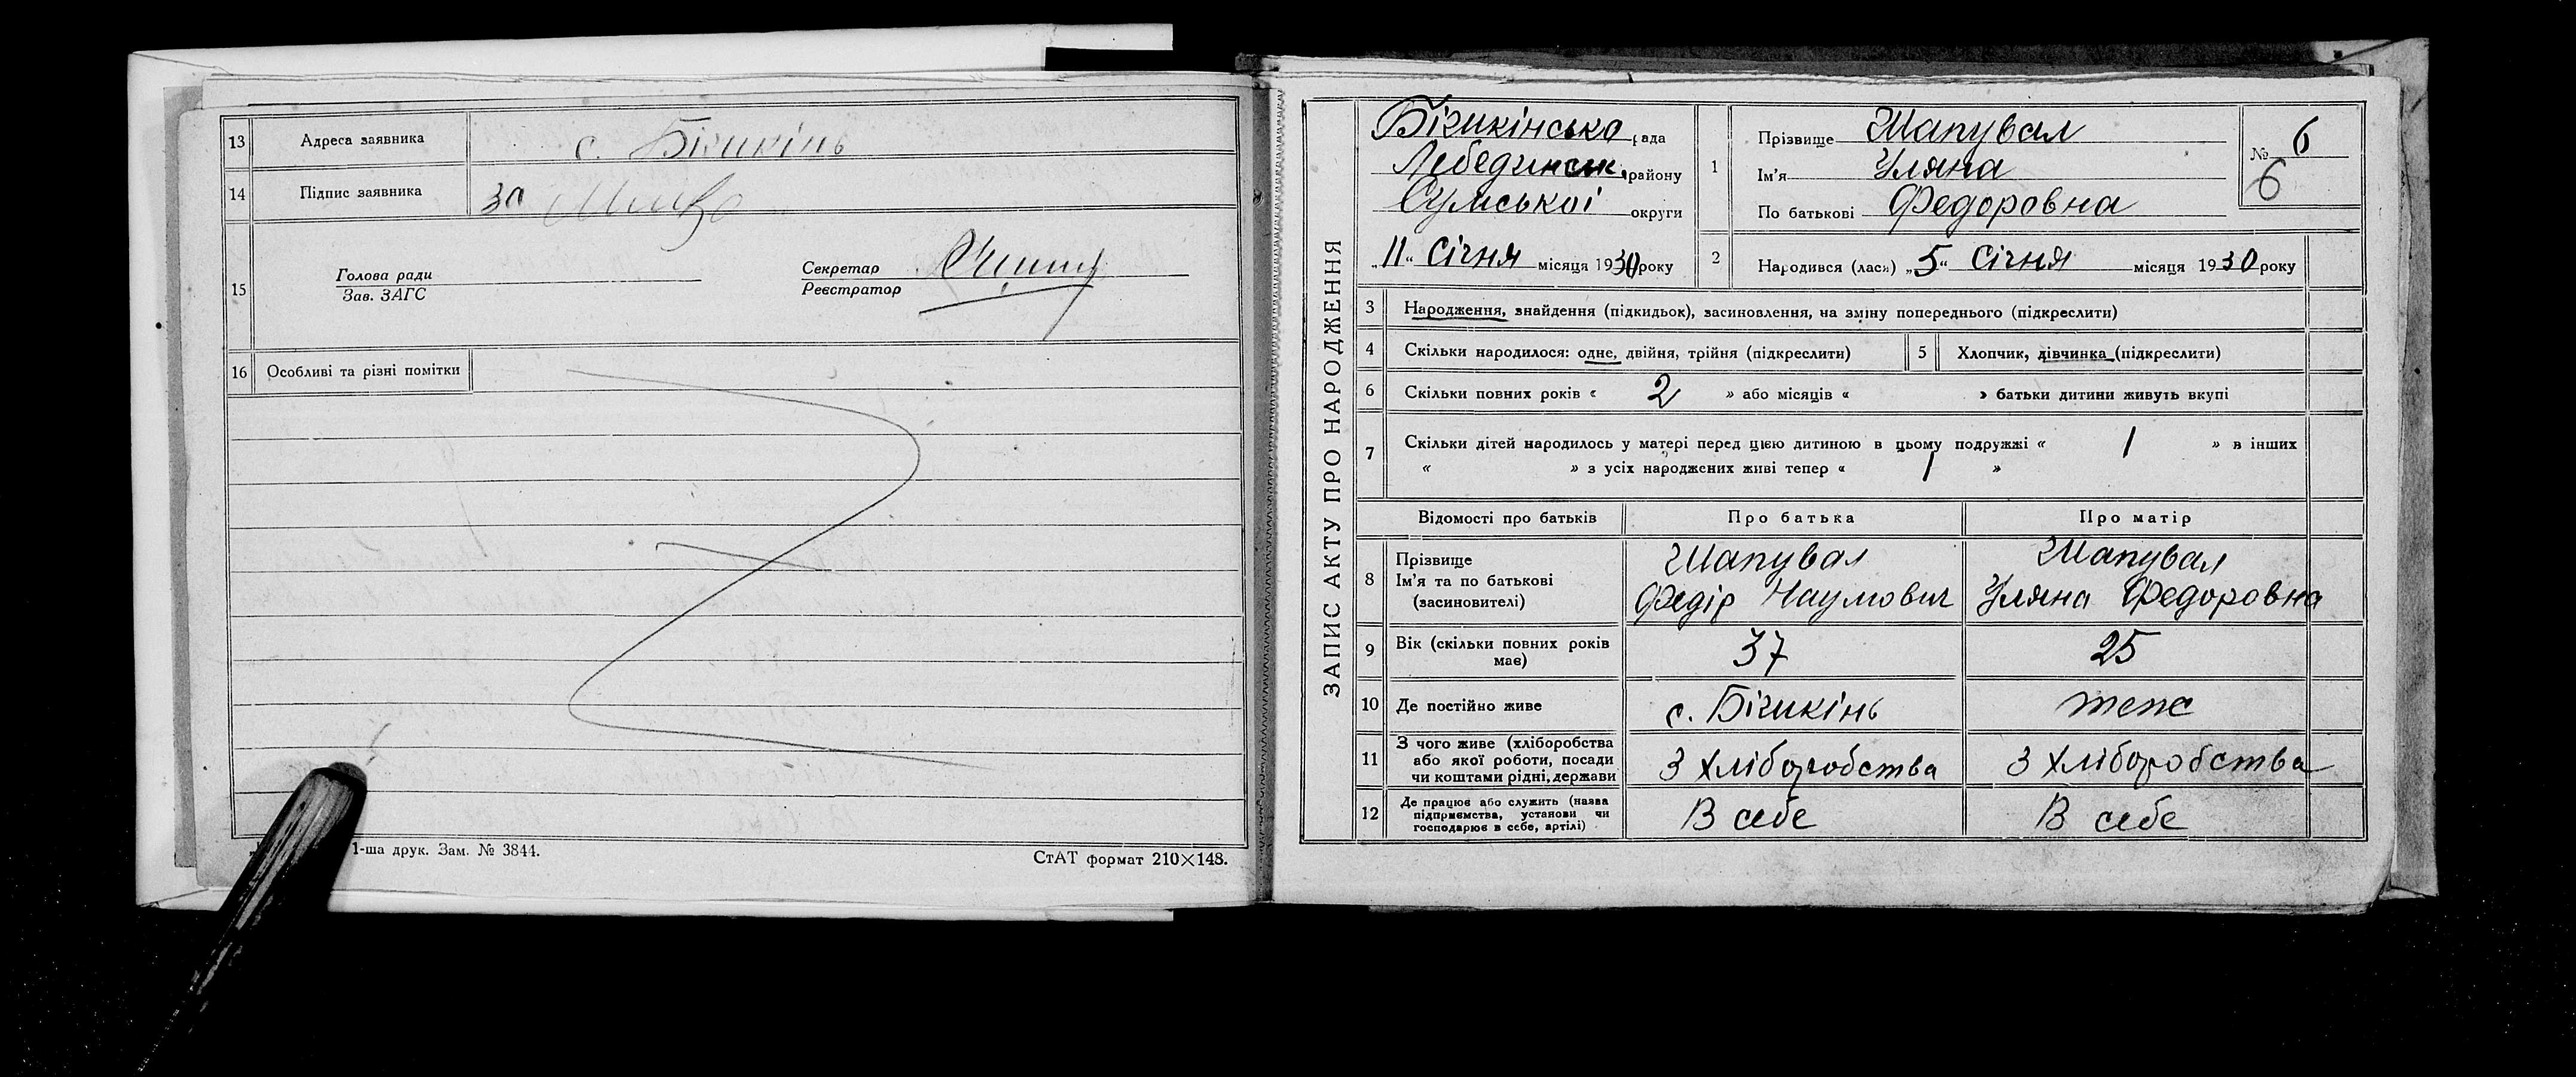 13 Адреса заявника с. Бішкінь
14 Підпис заявника за
15 Голова ради
Зав. ЗАГС
Секретар
Реєстратор
16 Особливі та різні помітки
1-ша друк. Зам. № 3844.
СтАТ формат 210×148.
ЗАПИС АКТУ ПРО НАРОДЖЕННЯ
Бішкінська рада
Лебединськ. району
Сумської округи
„11“ Січня місяця 1930 року
1 Прізвище Шапувал
Ім'я Уляна
По батькові Федоровна
№ 6
6
2 Народився (лась) „5“ Січня місяця 1930 року
3 Народження, знайдення (підкидьок), засиновлення, на зміну попереднього (підкреслити)
4 Скільки народилося: одне, двійня, трійня (підкреслити) 5 Хлопчик, дівчинка (підкреслити)
6 Скільки повних років « 2 » або місяців « » батьки дитини живуть вкупі
7 Скільки дітей народилось у матері перед цією дитиною в цьому подружжі « 1 » в інших
« » з усіх народжених живі тепер « 1 »
Відомості про батьків Про батька Про матір
8 Прізвище
Ім'я та по батькові
(засиновителі)
Шапувал
Федір Наумович
Шапувал
Уляна Федоровна
9 Вік (скільки повних років
має)
37 25
10 Де постійно живе с. Бішкінь теж
11 З чого живе (хліборобства
або якої роботи, посади
чи коштами рідні, держави
З хліборобства З хліборобства
12 Де працює або служить (назва
підприємства, установи чи
господарює в себе, артілі)
В себе В себе